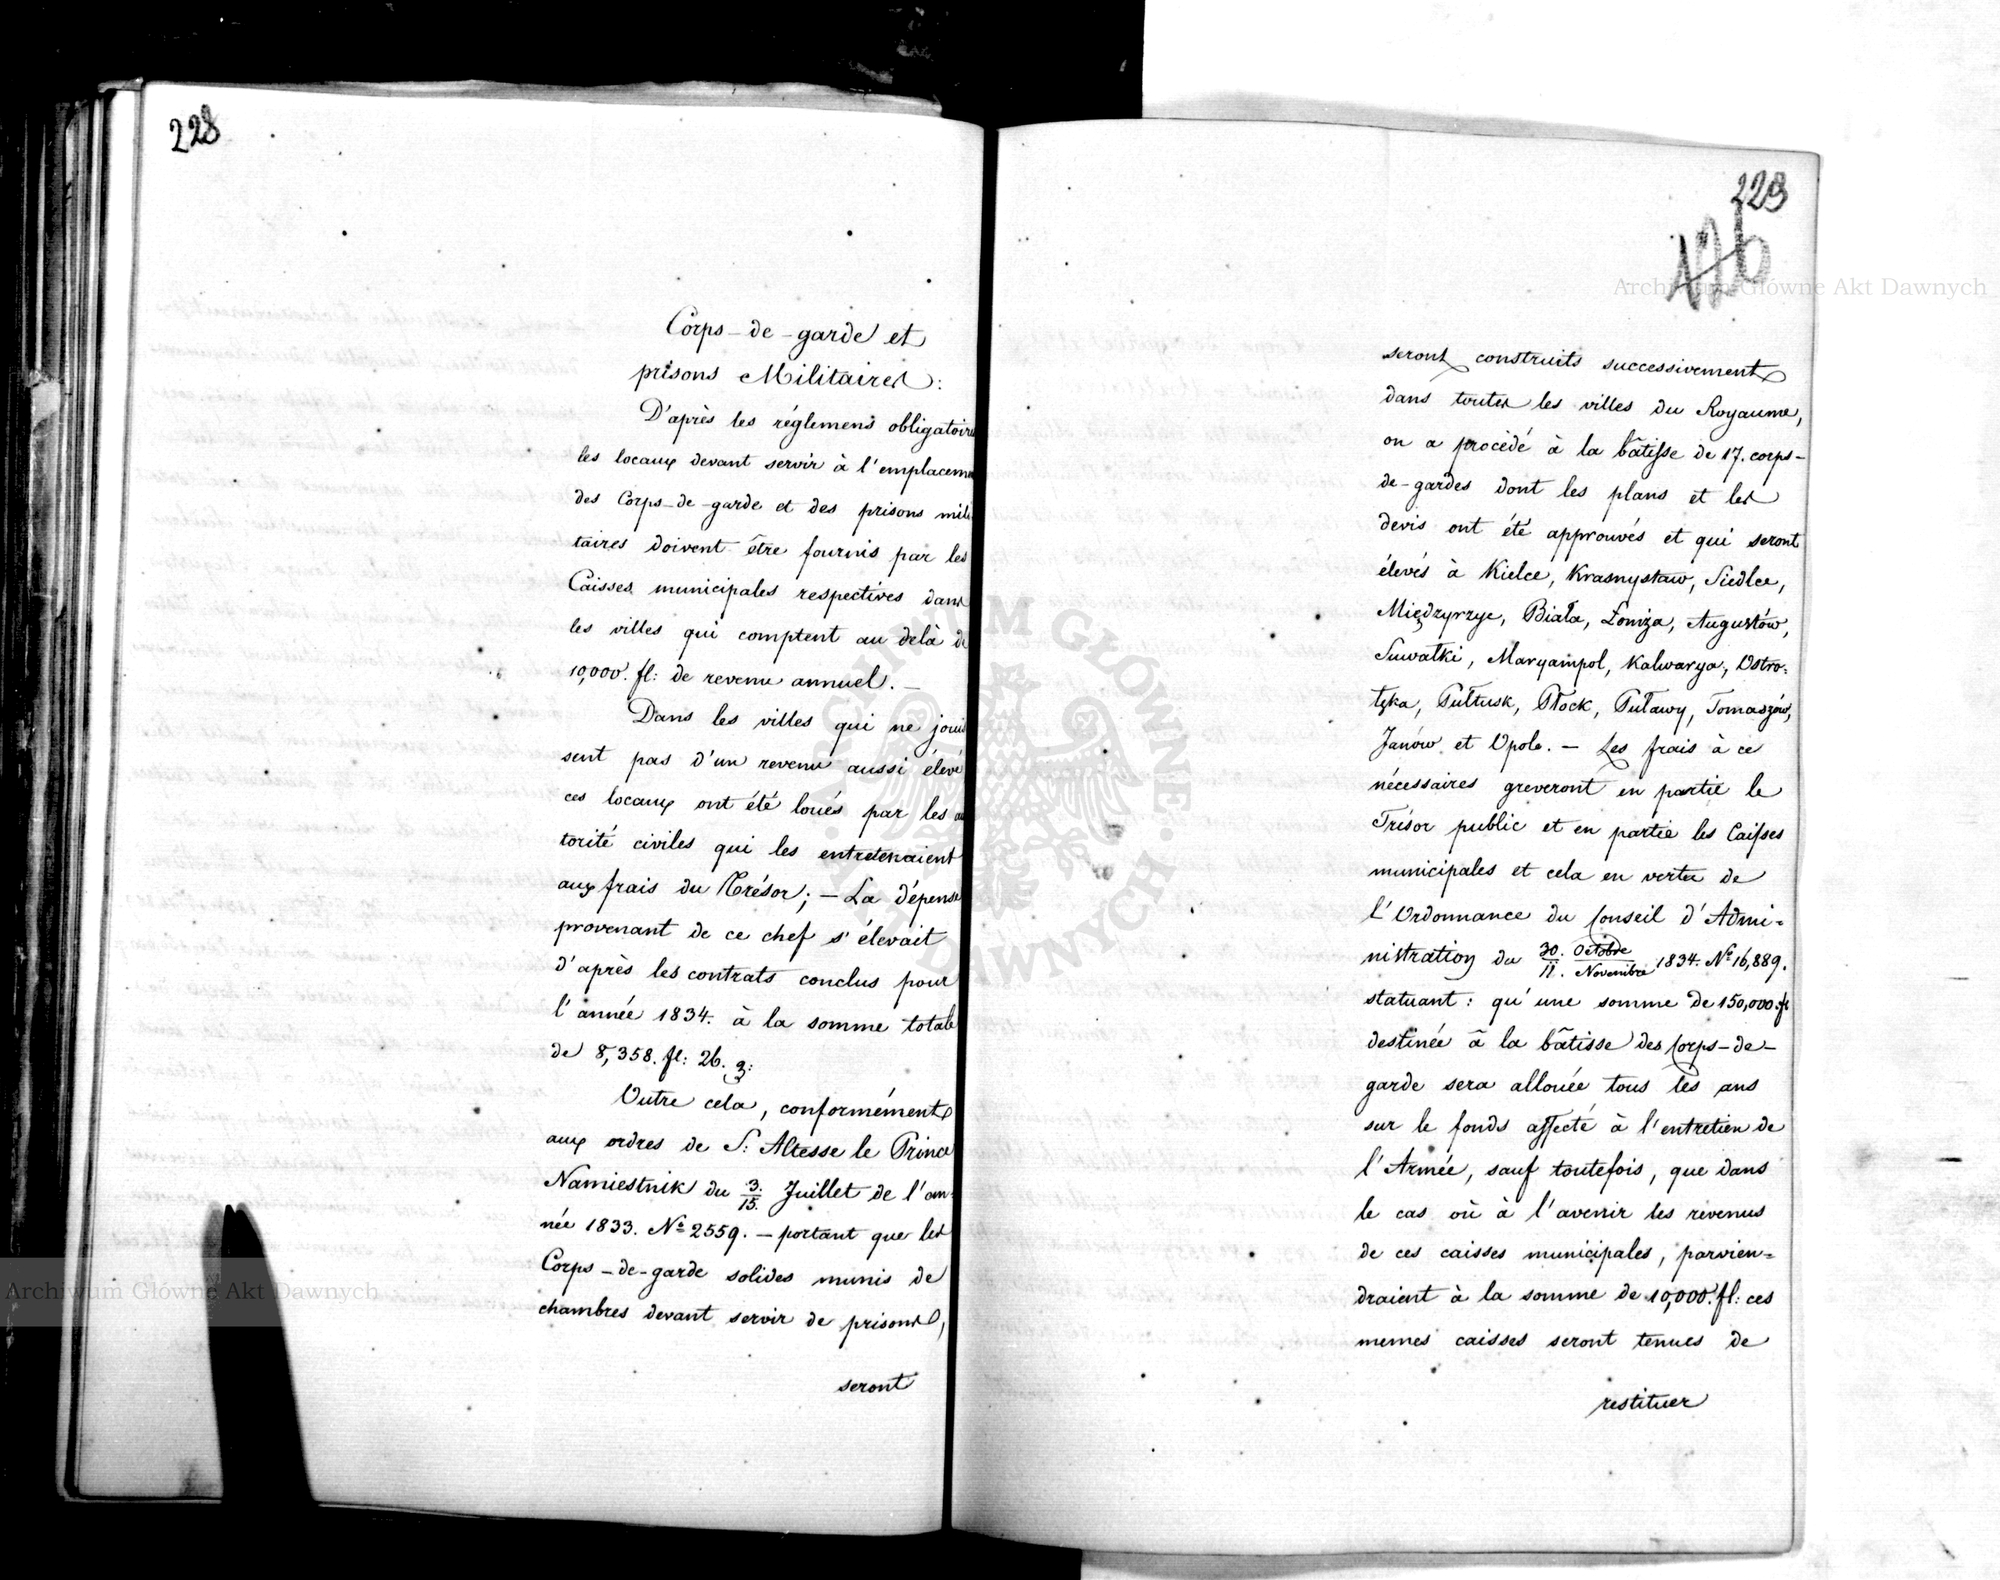 228
Corps-de-garde et
prisons Militaires:
D'après les réglemens obligatoires
les locaux devant servir à l'emplaceme
des Corps-de-garde et des prisons mili
taires doivent être fournis par les
Caisses municipales respectives dans
les villes qui comptent au delà de
10,000. fl: de revenu annuel. —
Dans les villes qui ne jouis
sent pas d'un revenu aussi élevé
ces locaux ont été loués par les au
torité civiles qui les entretenaient
aux frais du Trésor; — La dépense
provenant de ce chef s'élevait
d'après les contrats conclus pour
l'année 1834. à la somme totale
de 8,358. fl: 26. g:
Outre cela, conformément
aux ordres de S: Altesse le Prince
Namiestnik du 3/15. Juillet de l'an-
née 1833. No 2559. — portant que les
Corps-de-garde solides munis de
chambres devant servir de prisons,
seront
229
176
seront construits successivement
dans toutes les villes du Royaume,
on a procédé à la bâtisse de 17. corps-
de-gardes dont les plans et les
devis ont été approuvés et qui seront
élevés à Kielce, Krasnystaw, Siedlce,
Międzyrzyc, Biała, Łomża, Augustów,
Suwałki, Maryampol, Kalwarya, Ostro-
łęka, Pułtusk, Płock, Puławy, Tomaszów,
Janów et Opole. — Les frais à ce
nécessaires greveront en partie le
Trésor public et en partie les Caisses
municipales et cela en vertu de
l'Ordonnance du Conseil d'Admi-
nistration du 30. Octobre/11. Novembre 1834. No 16,889.
statuant: qu'une somme de 150,000. fl
destinée à la bâtisse des Corps-de-
garde sera allouée tous les ans
sur le fonds affecté à l'entretien de
l'Armée, sauf toutefois, que dans
le cas où à l'avenir les revenus
de ces caisses municipales, parvien-
draient à la somme de 10,000. fl: ces
memes caisses seront tenues de
restituer
Archiwum Główne Akt Dawnych
Archiwum Główne Akt Dawnych
ARCHIWUM GŁÓWNE AKT DAWNYCH